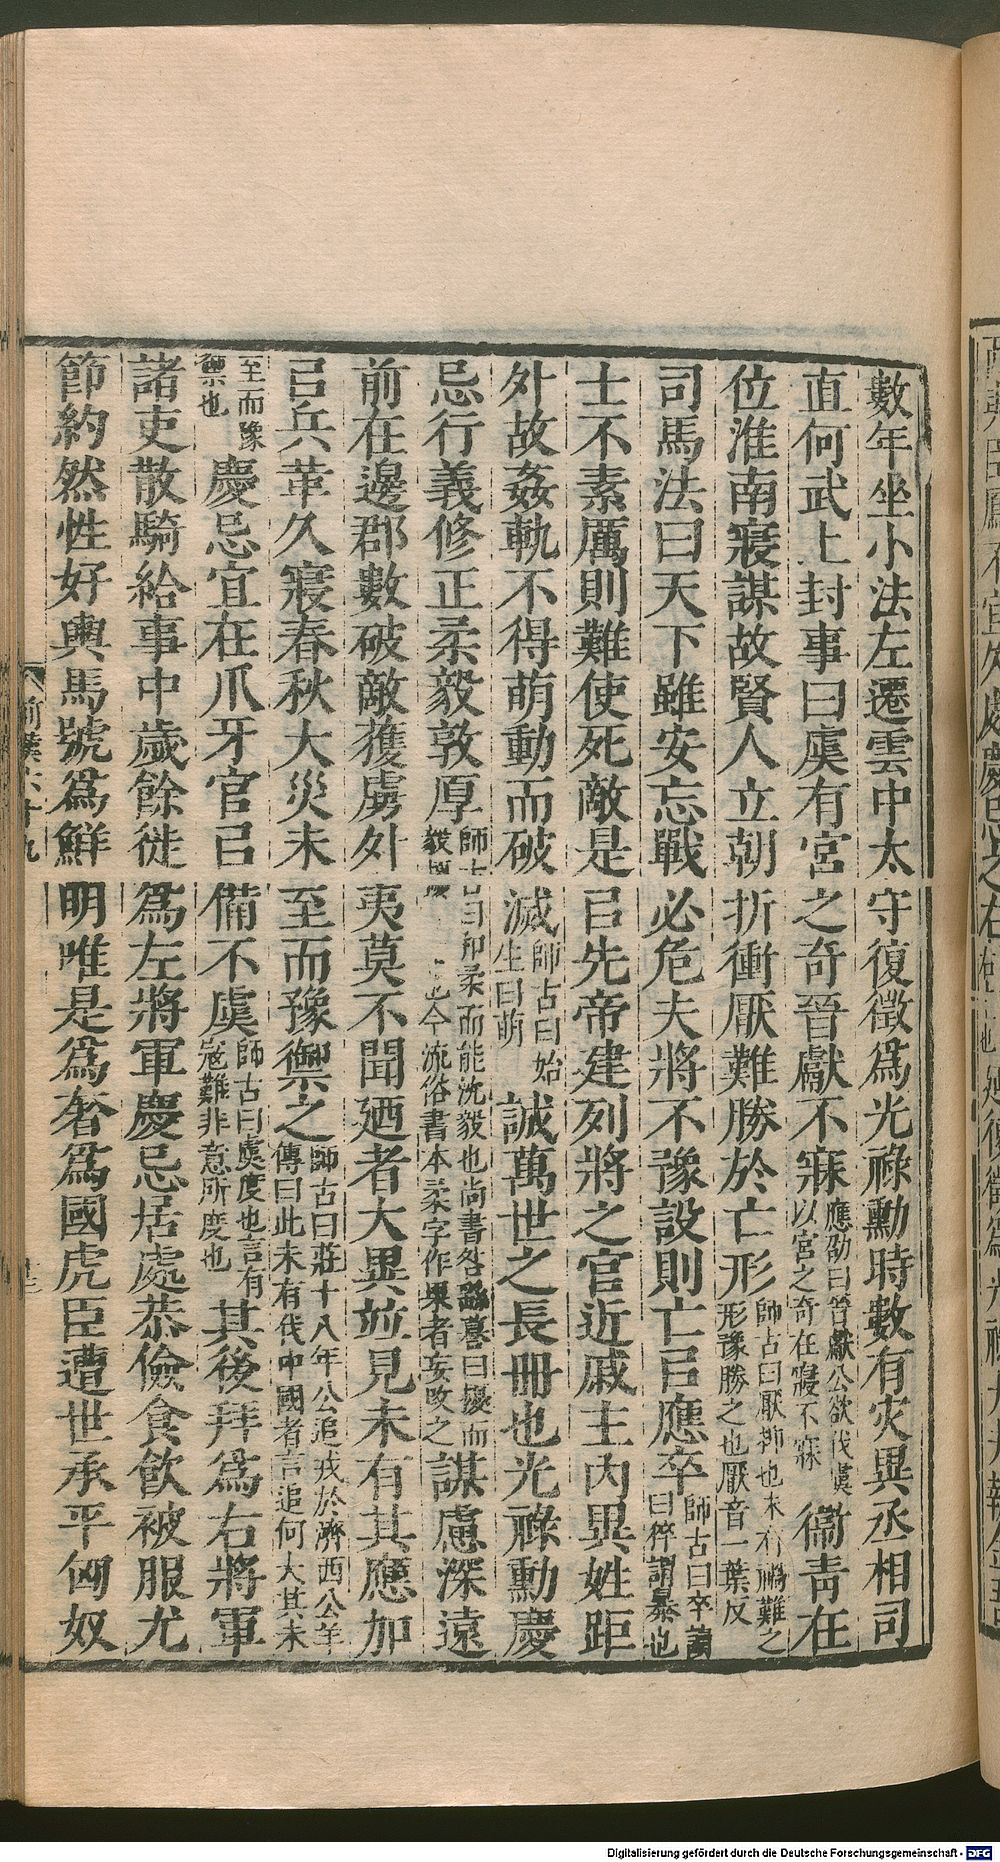 數年坐小法左遷雲中太守復徵爲光祿勳時數有灾異丞相司
直何武上封事曰虞有宮之奇晉獻不寐應劭曰晉獻公欲伐虞以宮之奇在寢不寐衞靑在
位淮南寢謀故賢人立朝折衝厭難勝於亡形師古曰厭抑也未有禍難之形豫勝之也厭音一葉反
司馬法曰天下雖安忘戰必危夫將不豫設則亡㠯應卒師古曰卒讀曰猝謂暴也
士不素厲則難使死敵是㠯先帝建列將之官近戚主內異姓距
外故姦軌不得萌動而破滅師古曰始生曰萌誠萬世之長冊也光祿勳慶
忌行義修正柔毅敦厚師古曰和柔而能沈毅也尚書咎繇謩曰擾而毅也今流俗書本柔字作果者妄改之謀慮深遠
前在邊郡數破敵獲虜外夷莫不聞廼者大異並見未有其應加
㠯兵革久寢春秋大災未至而豫禦之師古曰莊十八年公追戎於濟西公羊傳曰此未有伐中國者言追何大其未
至而豫禦也慶忌宜在爪牙官㠯備不虞師古曰虞度也言有寇難非意所度也其後拜爲右將軍
諸吏散騎給事中歲餘徙爲左將軍慶忌居處恭儉食飲被服尤
節約然性好輿馬號爲鮮明唯是爲奢爲國虎臣遭世承平匈奴
前漢六十九
Digitalisierung gefördert durch die Deutsche Forschungsgemeinschaft - DFG